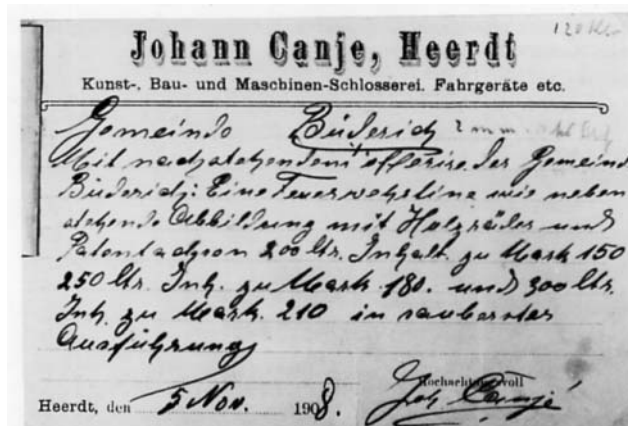 120 Mk
Johann Canje, Heerdt
Kunst-, Bau- und Maschinen-Schlosserei. Fahrgeräte etc.
Gemeinde Büderich 2 mm
Mit nachstehendem offerire der Gemeind
Büderich: Eine Feuerwehr wie neben
stehende Abbildung mit Holzräder und
Patentachsen 200 ltr. Inhalt zu Mark 150
250 ltr. Inh. zu Mark 180. und 300 ltr.
Inh. zu Mark. 210 in sauberster
Ausführung
Hochachtungsvoll
Heerdt, den 5 Nov. 1908. Joh Canjé